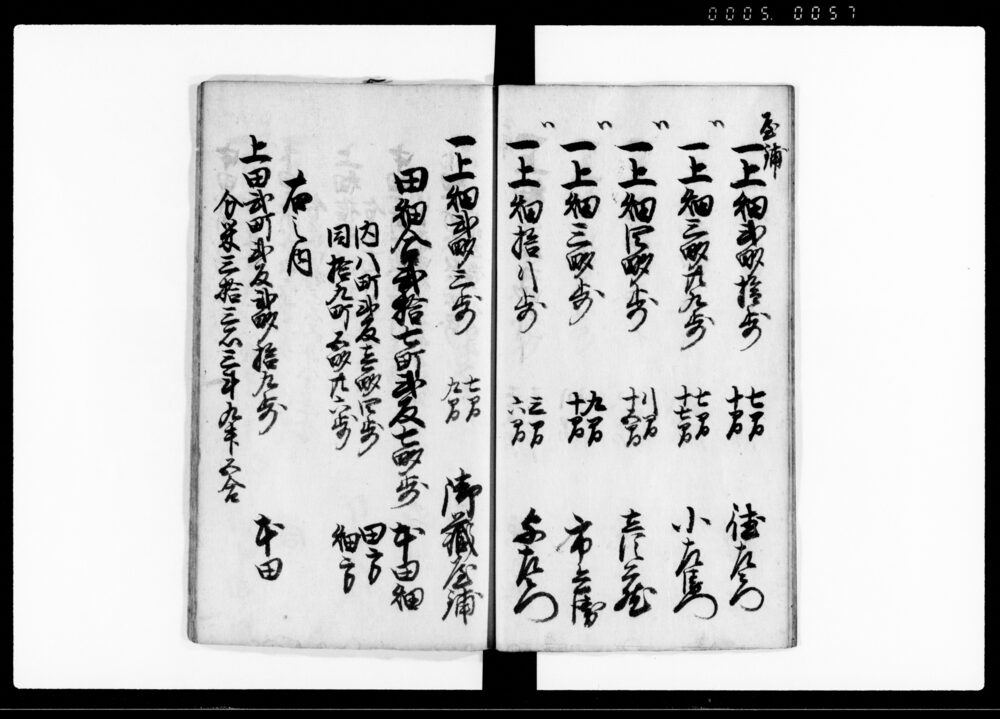 0005. 0057
屋鋪
一上畑弐畝拾歩 七間 十間 徳左衛門
〃
一上畑三畝廿九歩 七間 十七間 小左衛門
〃
一上畑四畝歩 八間 十五間
〃
一上畑三畝歩 九間 十間 市兵衛
〃
一上畑拾八歩 三間 六間 与左衛門
一上畑弐畝三歩 七間 九間 御蔵屋鋪
田畑合弐拾七町弐反七畝歩 本田畑
内八町弐反壱畝四歩 田方
同拾九町五畝廿六歩 畑方
右之内
上田弐町弐反弐畝拾九歩 本田
分米三拾三石三斗九升五合